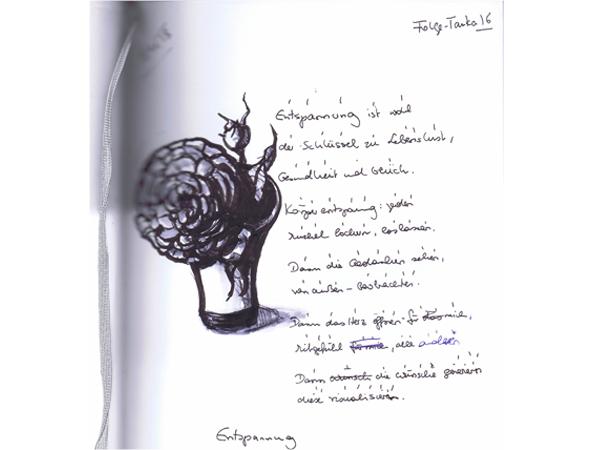 Folge-Tanka 16
Entspannung ist wohl
der Schlüssel zu Lebenslust,
Gesundheit und Glück.
Körperentspannung: jeden
Muskel lockern, loslassen.
Dann die Gedanken sehen,
von außen - betrachten.
Dann das Herz öffnen für
mitgefühl, alle anderen
Dann wünsch die wünsche
diese visualisieren.
Entspannung